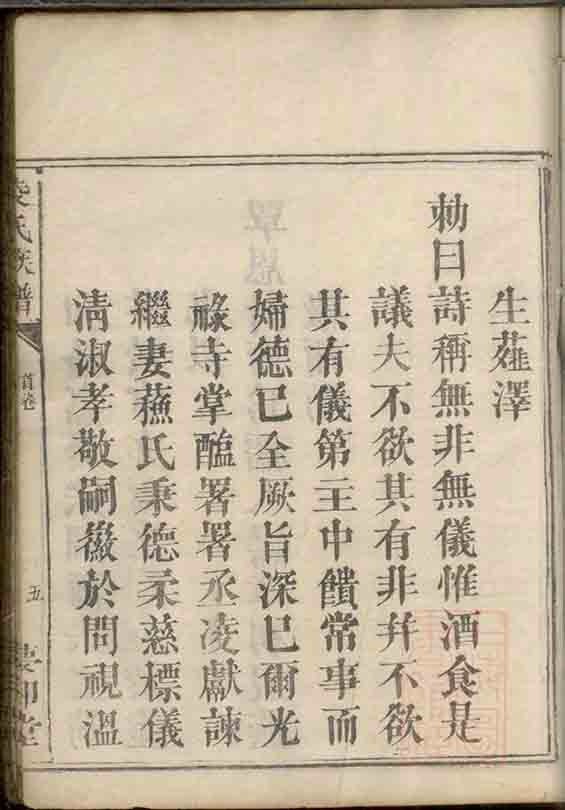 生蕹澤
勑曰詩稱無非無儀惟酒食是
議夫不欲其有非幷不欲
其有儀第主中饋常事而
婦德已全厥旨深已爾光
祿寺掌醢署署丞凌獻諫
繼妻蘓氏秉德柔慈標儀
淸淑孝敬嗣徽於問視溫
凌氏族譜
首卷
五